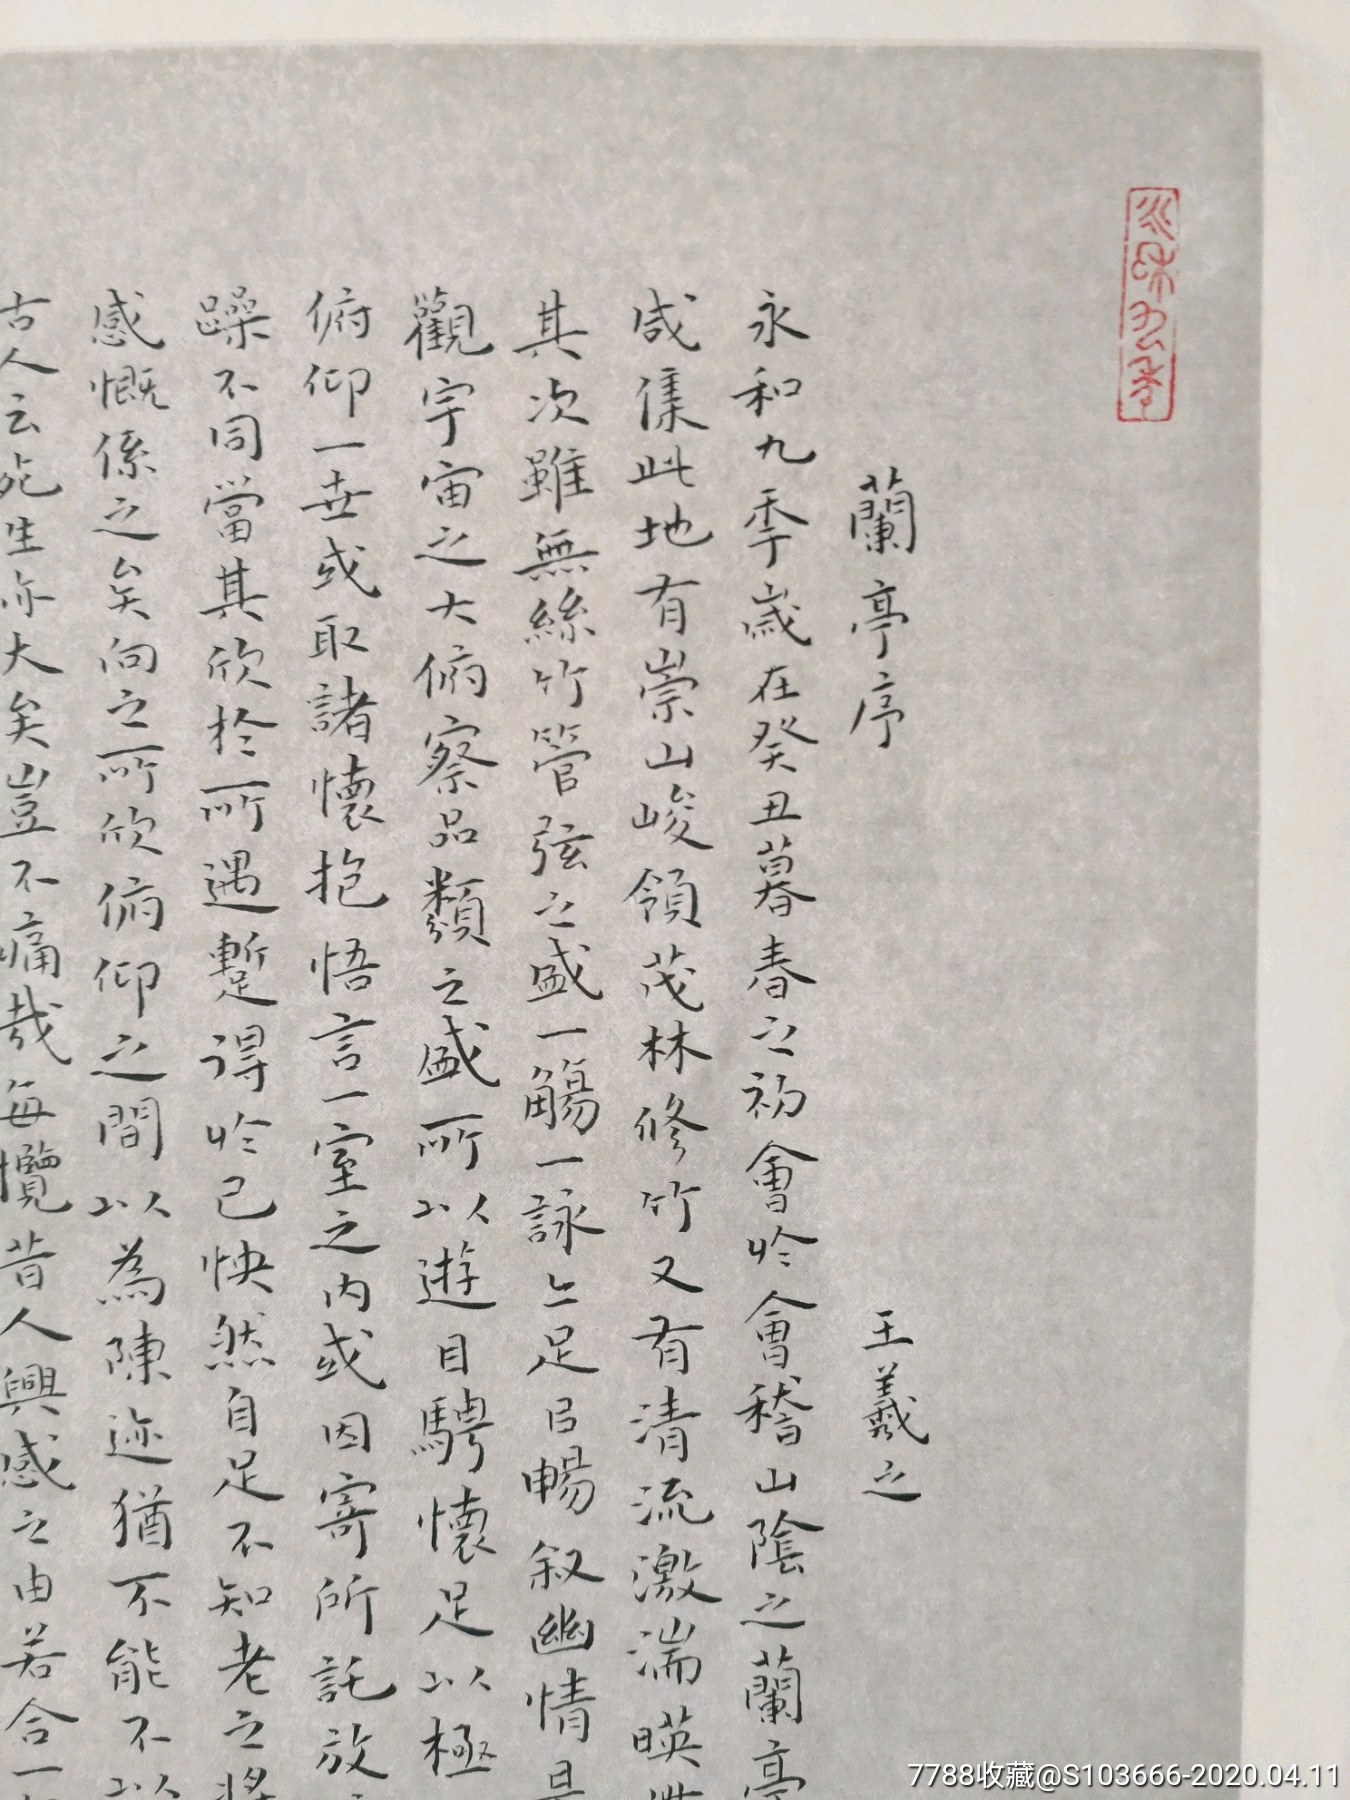 蘭亭序
王羲之
永和九季歲在癸丑暮春之初會於會稽山陰之蘭亭
咸集此地有崇山峻領茂林修竹又有清流激湍暎
其次雖無絲竹管弦之盛一觴一詠亦足以暢叙幽情是
觀宇宙之大俯察品類之盛所以遊目騁懷足以極
俯仰一世或取諸懷抱悟言一室之內或因寄所託放
躁不同當其欣於所遇蹔得於己怏然自足不知老之將
感慨係之矣向之所欣俯仰之間以為陳迹猶不能不以
古人云死生亦大矣豈不痛哉每攬昔人興感之由若合一
7788收藏@S103666-2020.04.11